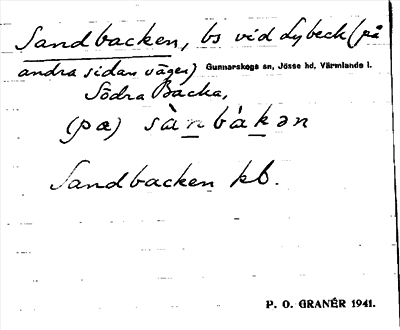 Sandbacken, bs vid Lybeck (på
andra sidan vägen) Gunnarskogs sn, Jösse hd, Värmlands l.
Södra Backa,
(pæ) sànbàkən
Sandbacken kb.
P. O. GRANÉR 1941.